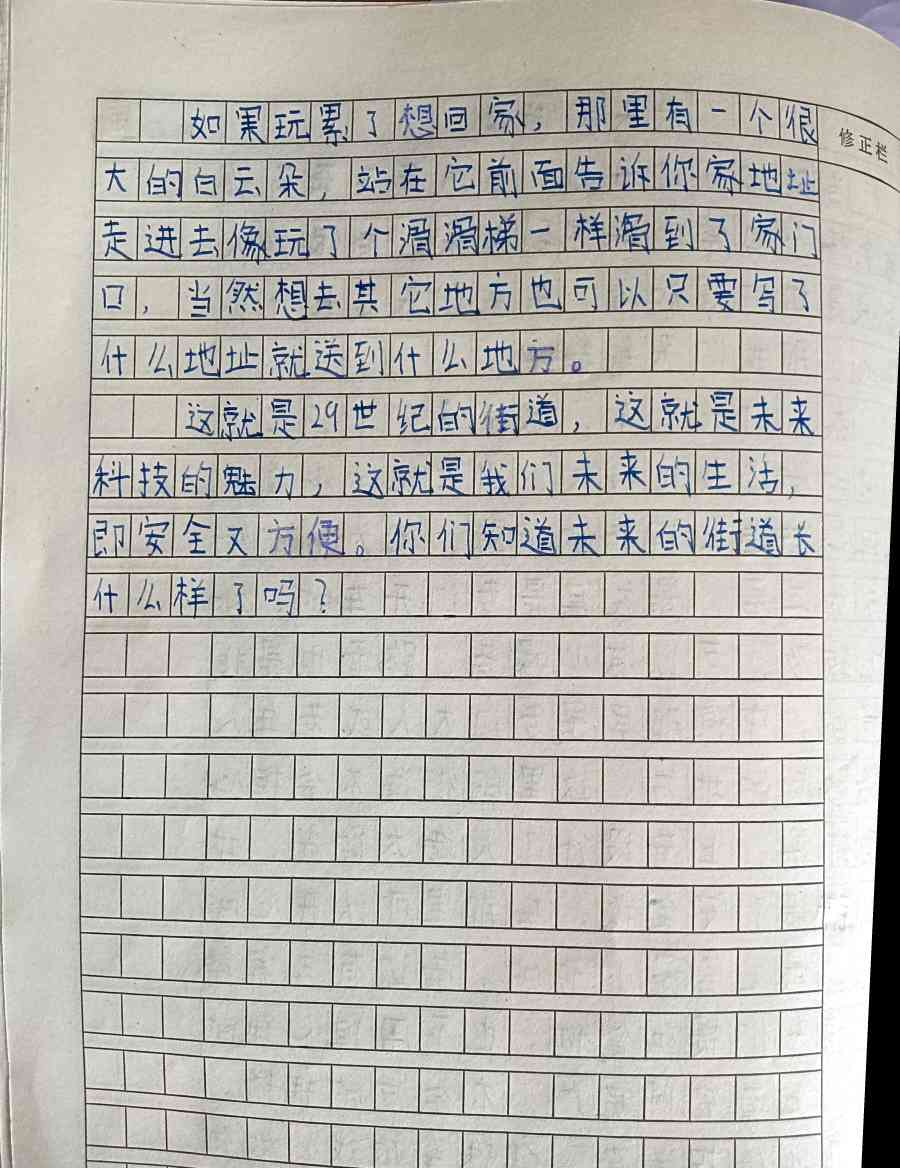 如果玩累了想回家，那里有一个很
修正栏
大的白云朵，站在它前面告诉你家地址
走进去像玩了个滑滑梯一样滑到了家门
口，当然想去其它地方也可以只要写了
什么地址就送到什么地方。
这就是29世纪的街道，这就是未来
科技的魅力，这就是我们未来的生活，
即安全又方便。你们知道未来的街道长
什么样了吗？